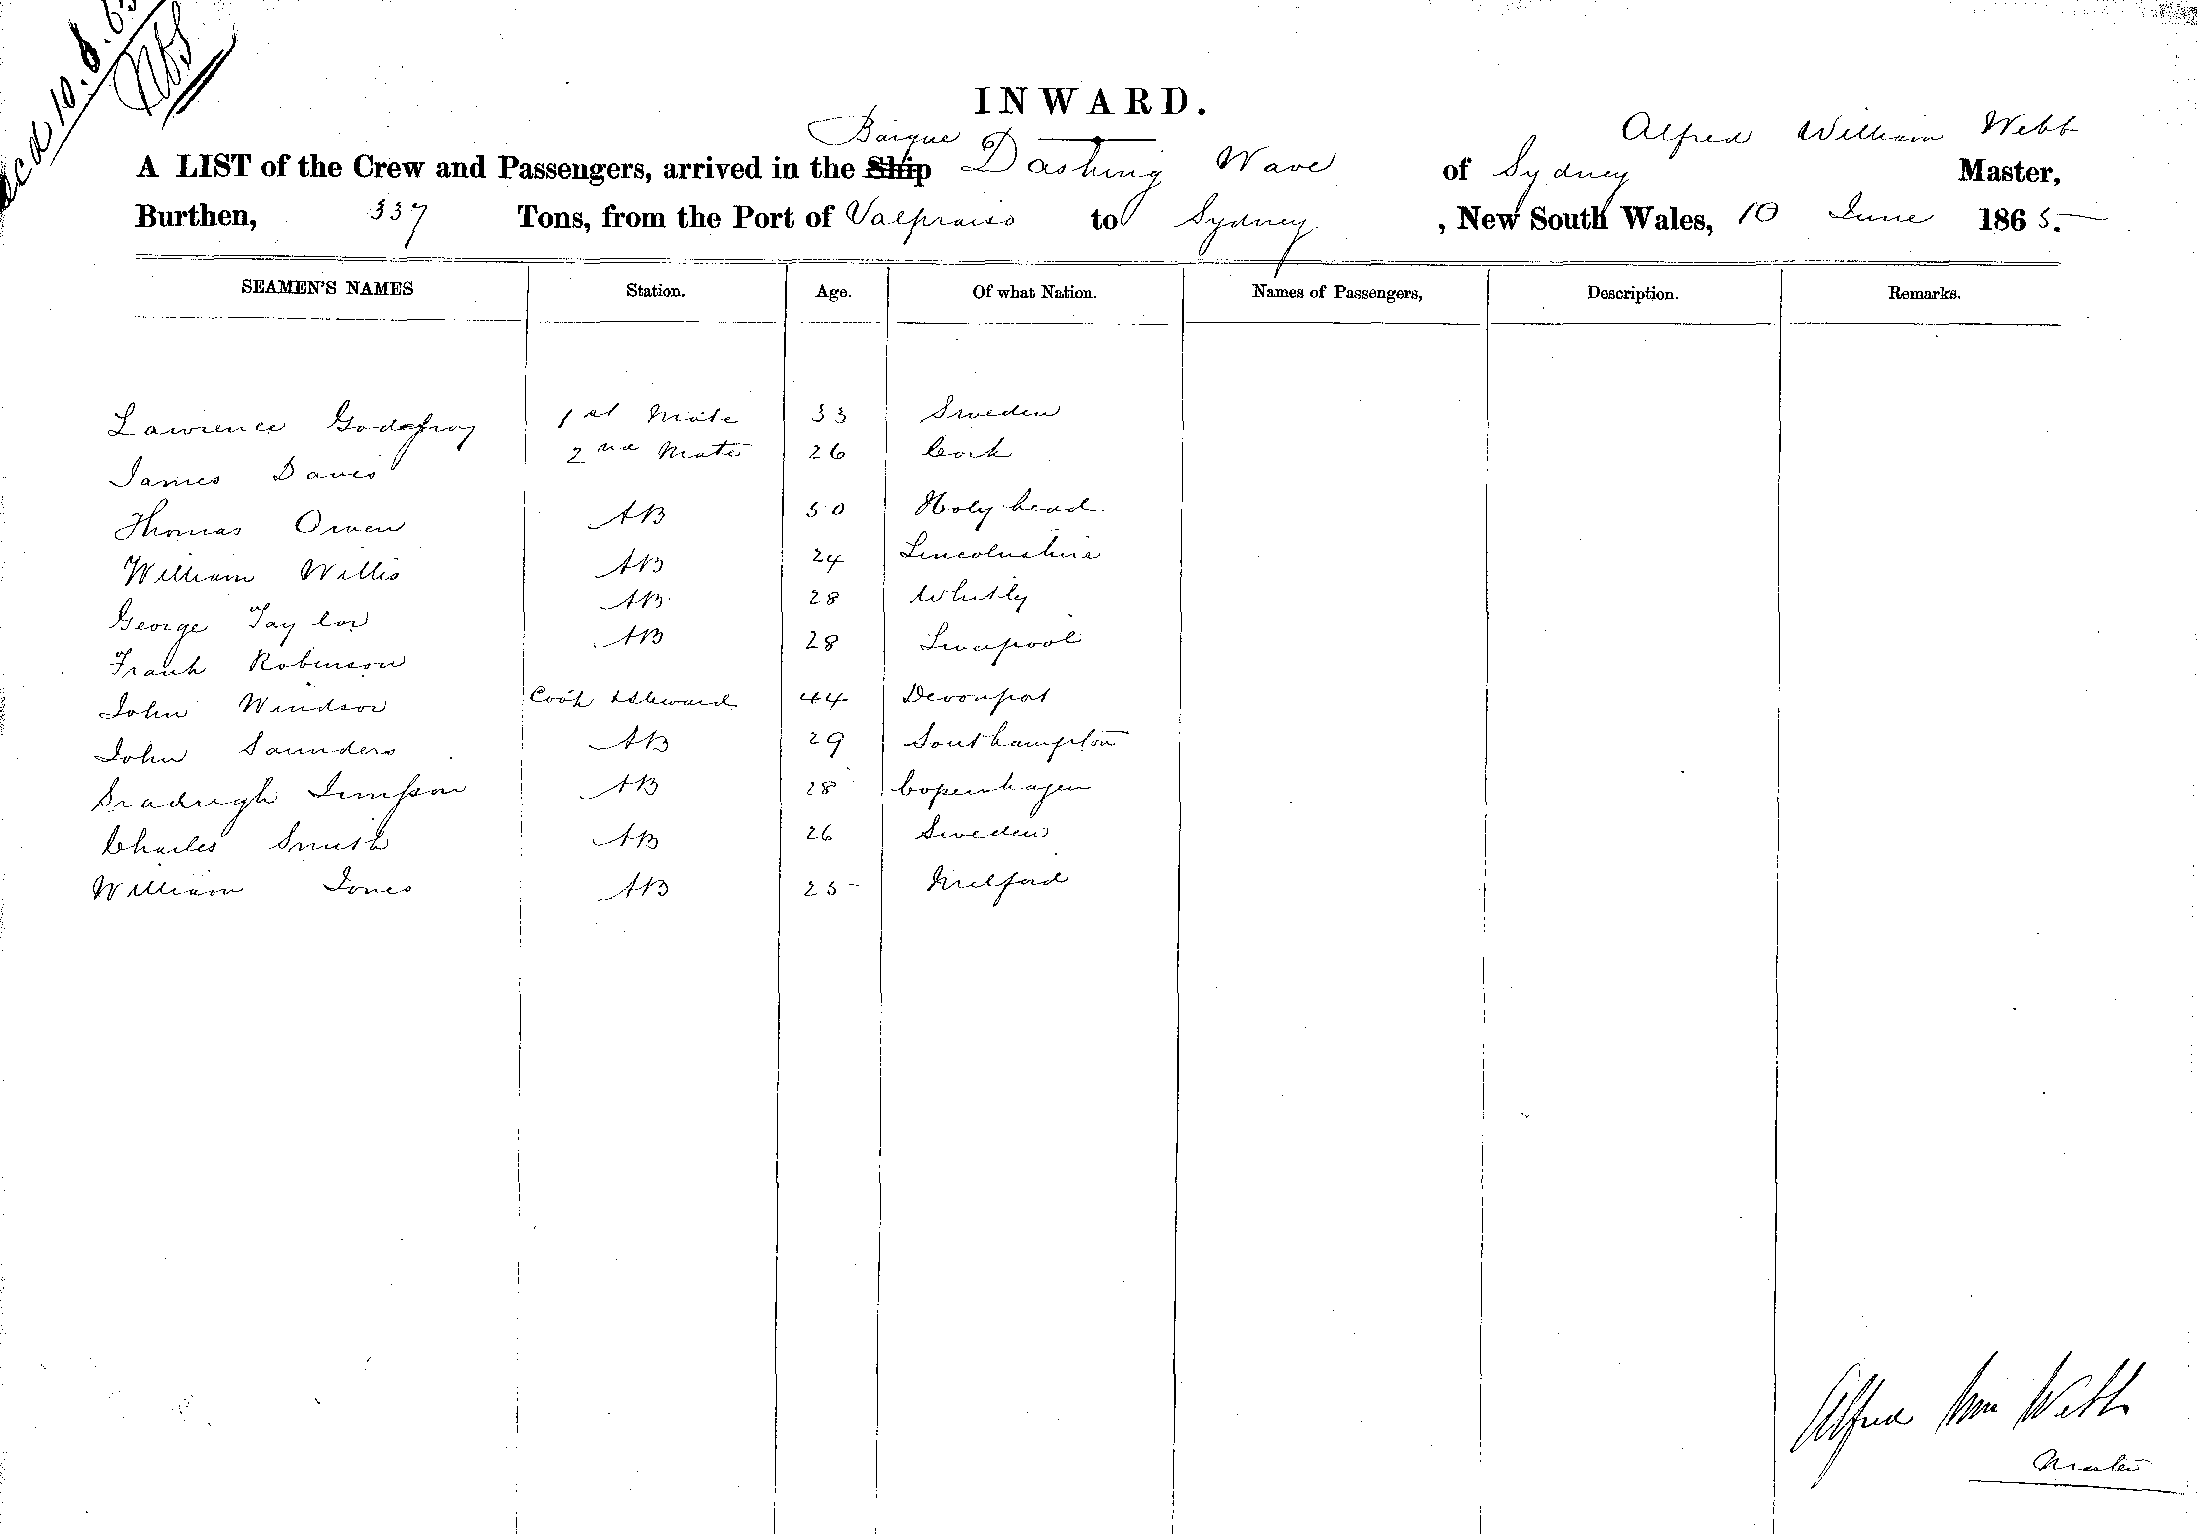 10.6.65
INWARD.
Barque Alfred William Webb
A LIST of the Crew and Passengers, arrived in the Ship Dashing Wave of Sydney Master,
Burthen, 337 Tons, from the Port of Valpraiso to Sydney , New South Wales, 10 June 1865.
SEAMEN'S NAMES Station. Age. Of what Nation. Names of Passengers, Description. Remarks.
Lawrence Godfroy 1st Mate 33 Sweden
James Daves 2nd Mate 26 Cork
Thomas Owen AB 50 Holyhead
William Willis AB 24 Lincolnshire
George Taylor AB 28 Whitly
Frank Robinson AB 28 Liverpool
John Windsor Cook & Steward 44 Devonport
John Saunders AB 29 Southampton
AB 28 Copenhagen
Charles Smith AB 26 Sweden
William Jones AB 25 Milford
Alfred Wm Webb
Master